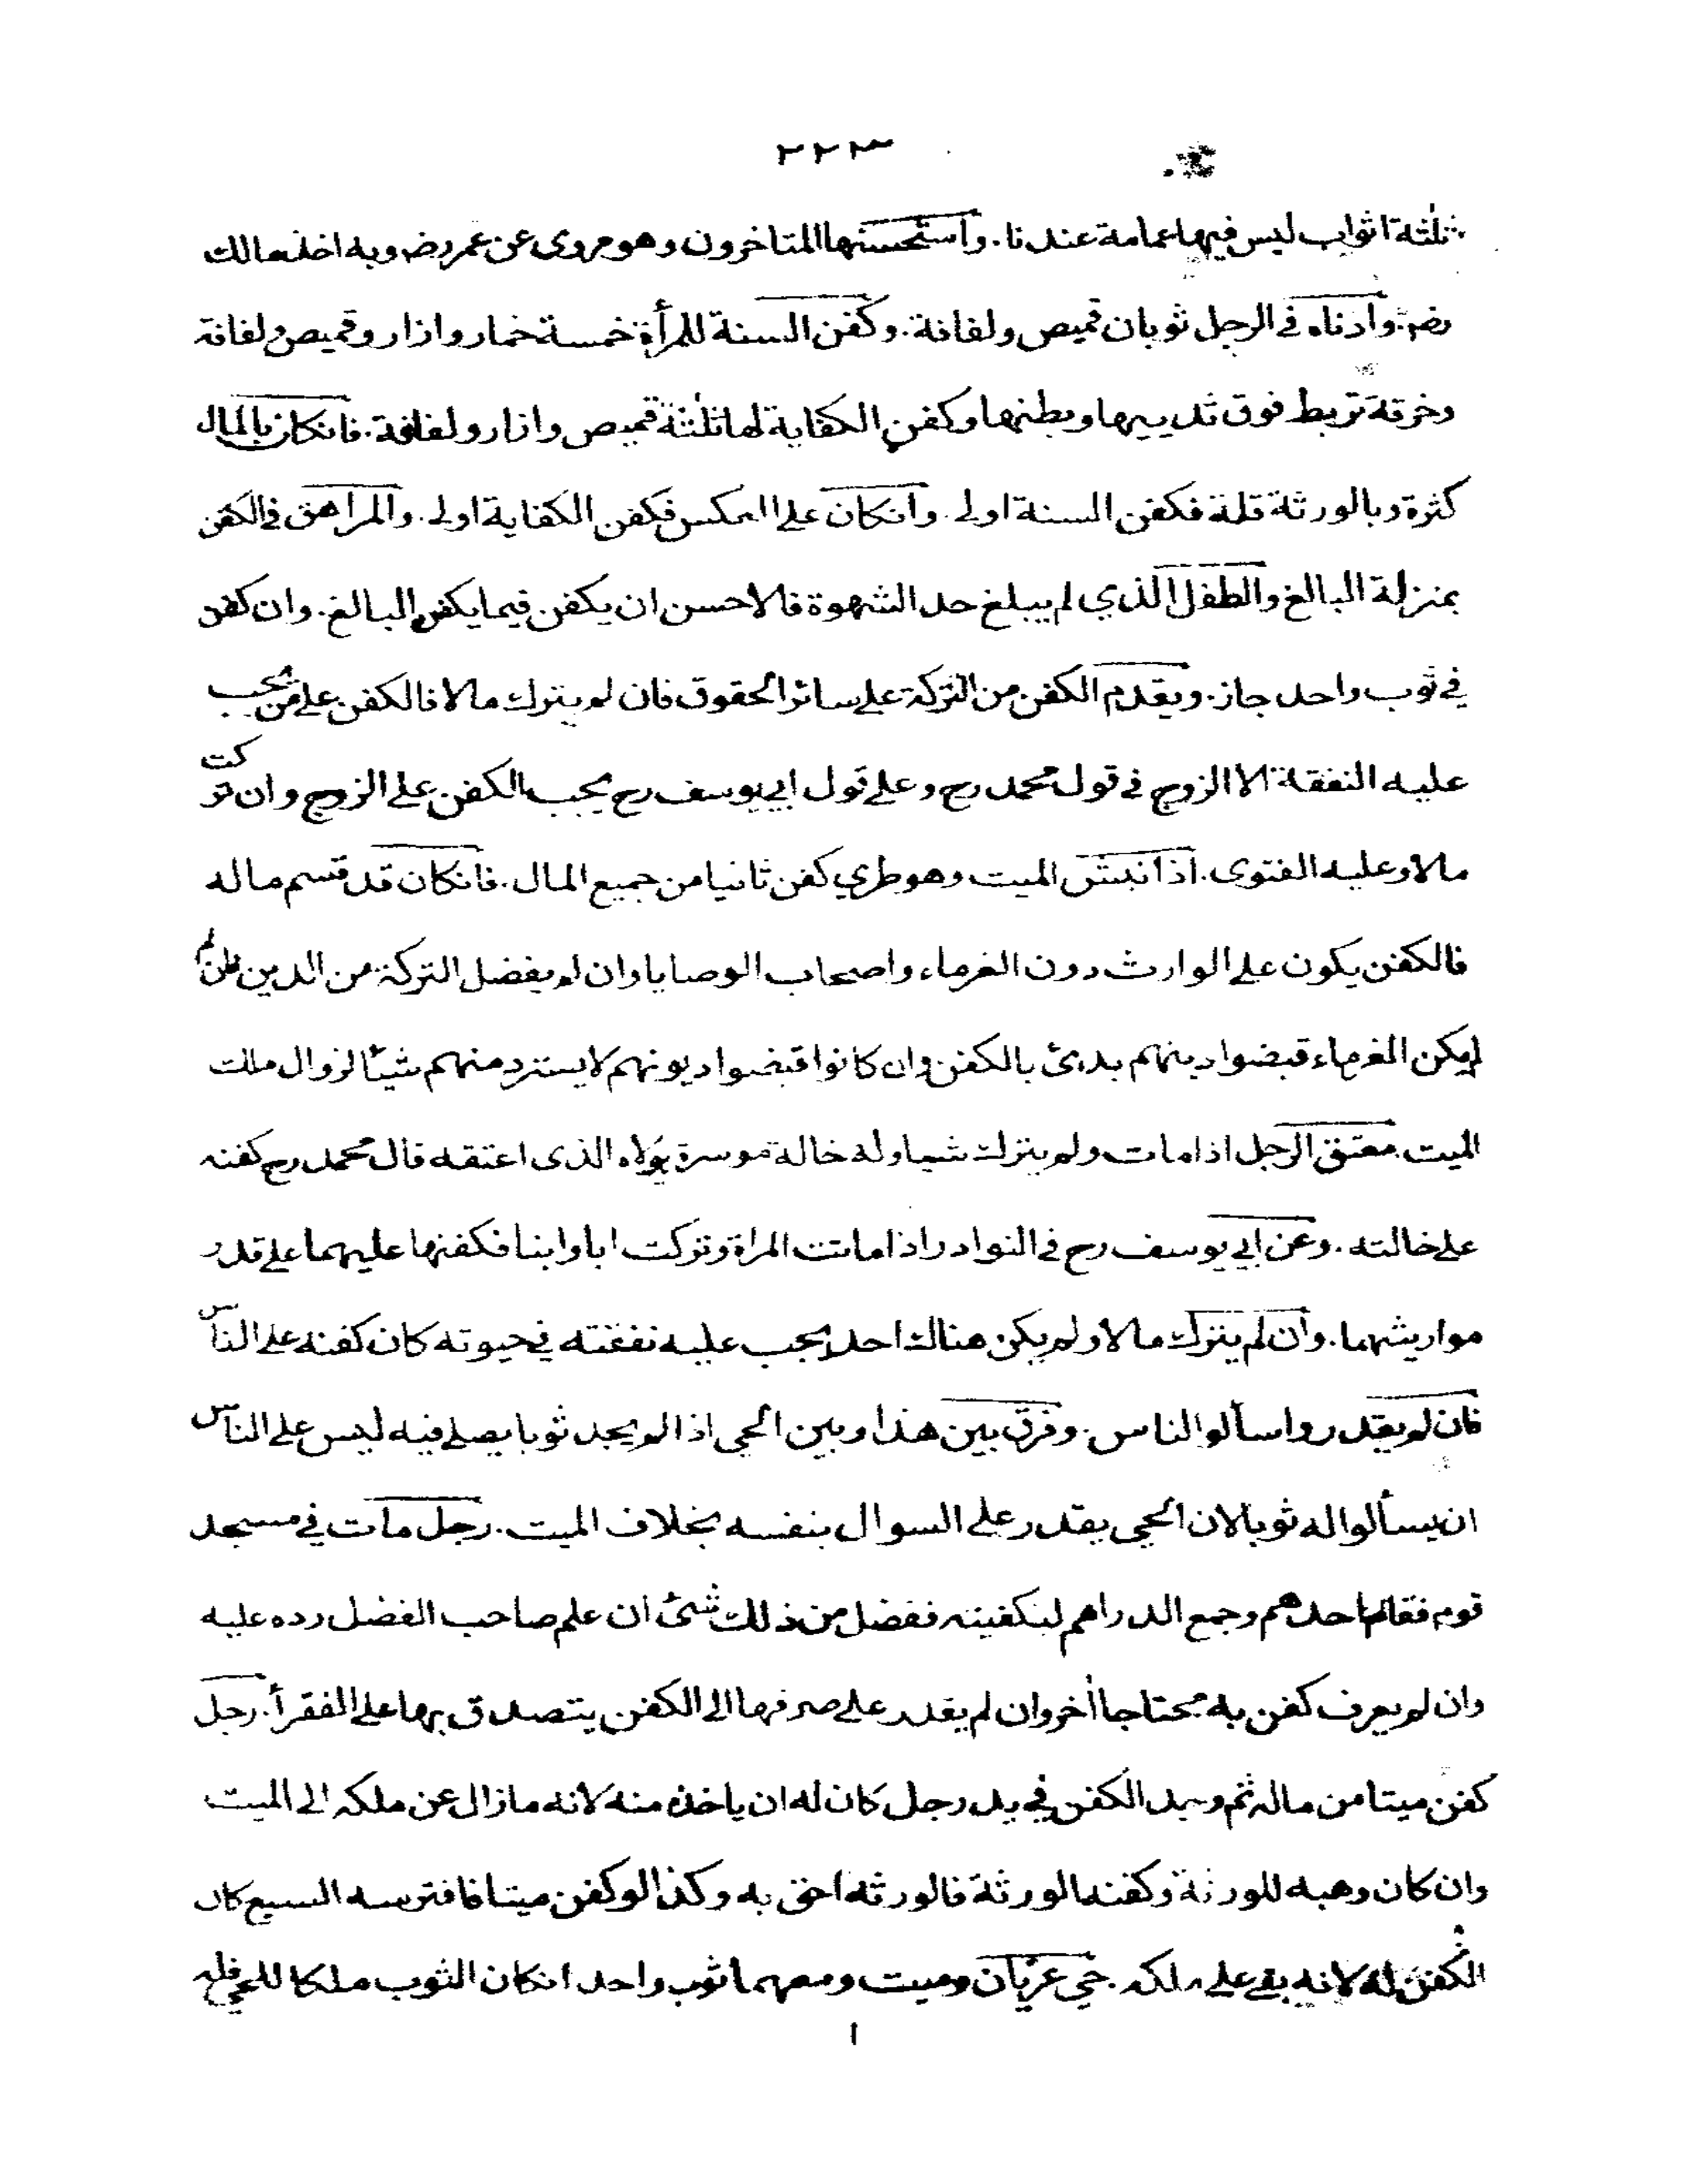 ٢٢٣
ثلثة اثواب ليس فيها عمامة عندنا. واستحسنها المتاخرون وهو مروى عن عمر رض وبه اخذ مالك
رض. وادناه في الرجل ثوبان قميص ولفافة. وكفن السنة للمرأة خمسة خمار وازار وقميص ولفافة
وخرقة تربط فوق ثدييها وبطنها وكفن الكفاية لها ثلثة قميص وازار ولفافة. فانكان بالمال
كثرة وبالورثة قلة فكفن السنة اولى. وانكان على العكس فكفن الكفاية اولى. والمراهق في الكفن
بمنزلة البالغ والطفل الذي لم يبلغ حد الشهوة فالاحسن ان يكفن فيما يكفن البالغ. وان كفن
في ثوب واحد جاز. ويقدم الكفن من التركة على سائر الحقوق فان لم يترك مالا فالكفن على من يجب
عليه النفقة الا الزوج في قول محمد رح وعلى قول ابي يوسف رح يجب الكفن على الزوج وان تركت
مالا وعليه الفتوى. اذا نبش الميت وهو طري كفن ثانيا من جميع المال. فانكان قد قسم ماله
فالكفن يكون على الوارث دون الغرماء واصحاب الوصايا وان لم يفضل التركة من الدين فان لم
يكن الغرماء قبضوا دينهم بدئ بالكفن وان كانوا قبضوا ديونهم لا يسترد منهم شيئا لزوال ملك
الميت. معتق الرجل اذا مات ولم يترك شيا وله خالة موسرة ومولاه الذى اعتقه قال محمد رح كفنه
على خالته. وعن ابي يوسف رح في النوادر اذا ماتت المراة وتركت ابا وابنا فكفنها عليهما على قدر
مواريثهما. وان لم يترك مالا ولم يكن هناك احد يجب عليه نفقته في حيوته كان كفنه على الناس
فان لم يقدروا سألوا الناس. وفرق بين هذا وبين الحي اذا لم يجد ثوبا يصلي فيه ليس على الناس
ان يسألوا له ثوبا لان الحي يقدر على السوال بنفسه بخلاف الميت. رجل مات في مسجد
قوم فقام احدهم وجمع الدراهم لتكفينه ففضل من ذلك شئ ان علم صاحب الفضل رده عليه
وان لم يعرف كفن به محتاجا أخر وان لم يقدر على صرفها الى الكفن يتصدق بها على الفقرأ. رجل
كفن ميتا من ماله ثم وجد الكفن في يد رجل كان له ان ياخذه منه لانه ما زال عن ملكه الى الميت
وان كان وهبه للورثة وكفنه الورثة فالورثة احق به وكذا لو كفن ميتا فافترسه السبع كان
الكفن له لانه بقي على ملكه. حي عريان وميت ومعهما ثوب واحد انكان الثوب ملكا للحي فله
ا